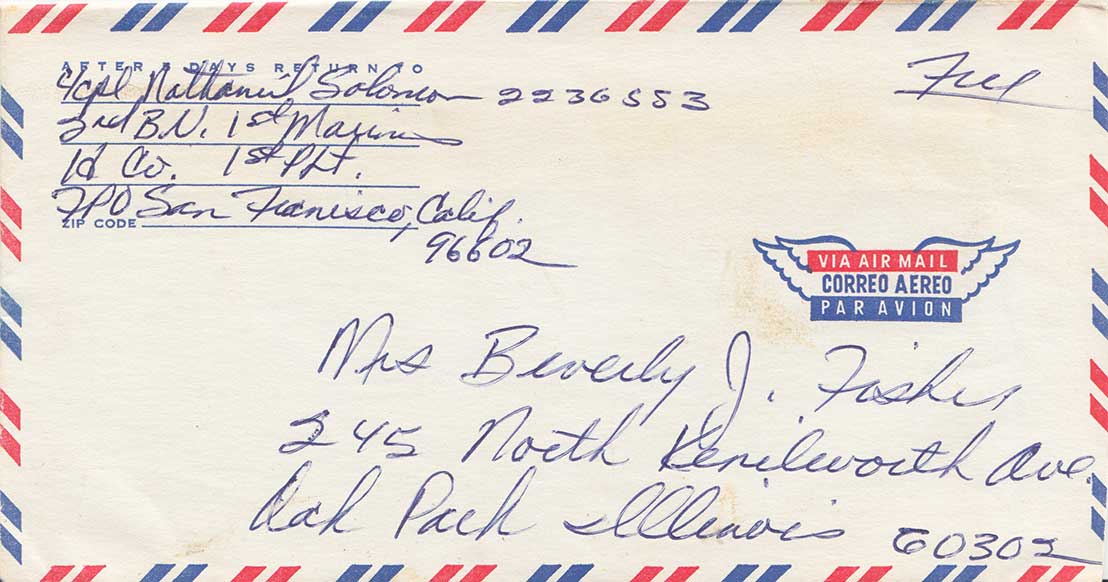 AFTER 5 DAYS RETURN TO
L/cpl Nathaniel Solomon 2236553
3rd BN. 1st Marines
H Co. 1st Plt.
FPO San Franisco, Calif.
ZIP CODE
96602
Free
VIA AIR MAIL
CORREO AEREO
PAR AVION
Mrs Beverly J. Fisher
245 North Kenilworth Ave.
Oak Park Illinois 60302